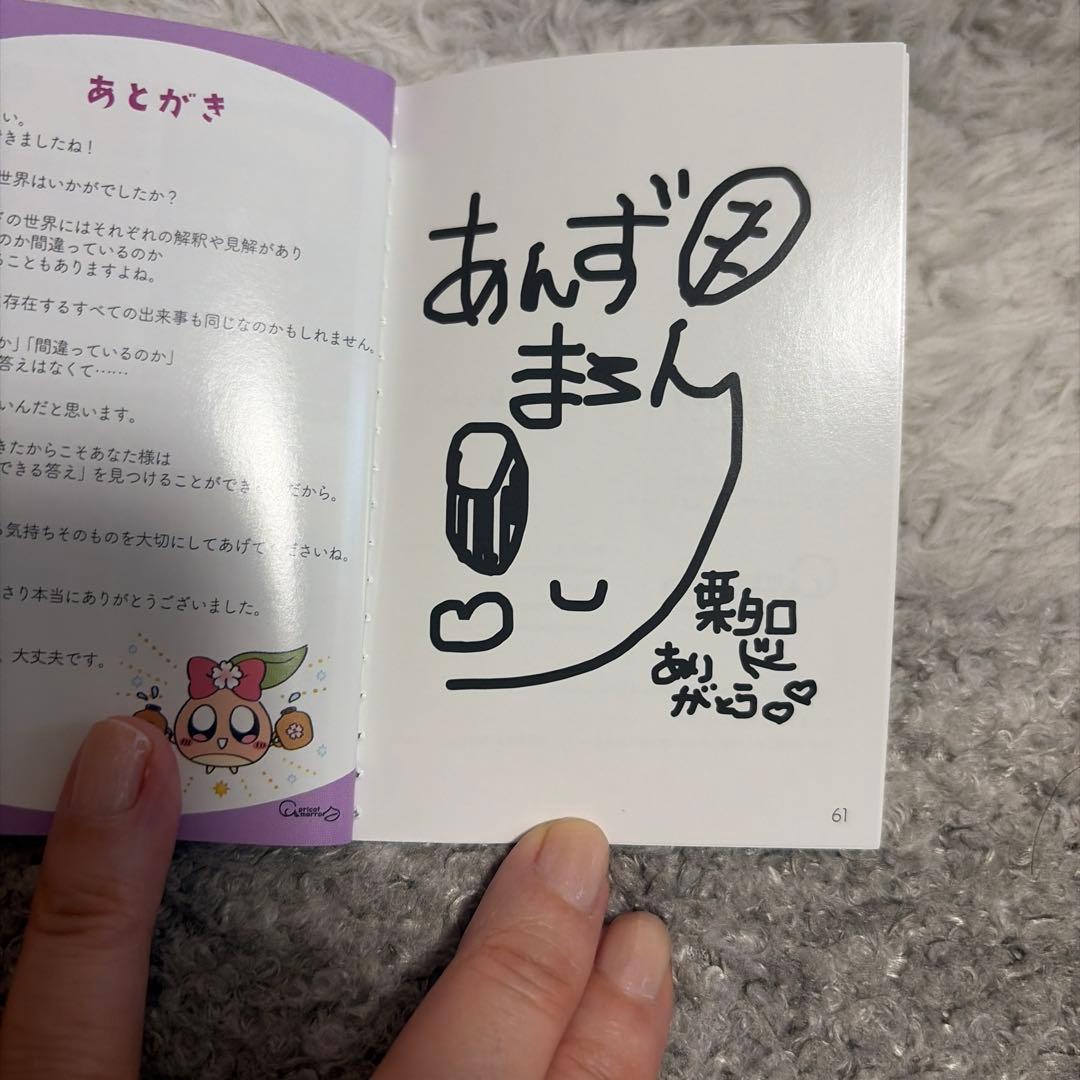 あとがき
い。
きましたね！
世界はいかがでしたか？
の世界にはそれぞれの解釈や見解があり
のか間違っているのか
ることもありますよね。
存在するすべての出来事も同じなのかもしれません。
か」「間違っているのか」
答えはなくて……
いんだと思います。
きたからこそあなた様は
できる答え」を見つけることができ だから。
気持ちそのものを大切にしてあげて ださいね。
さり本当にありがとうございました。
大丈夫です。
pricot
marron
あんず
まろん
栗タロ
あり
がとう
61